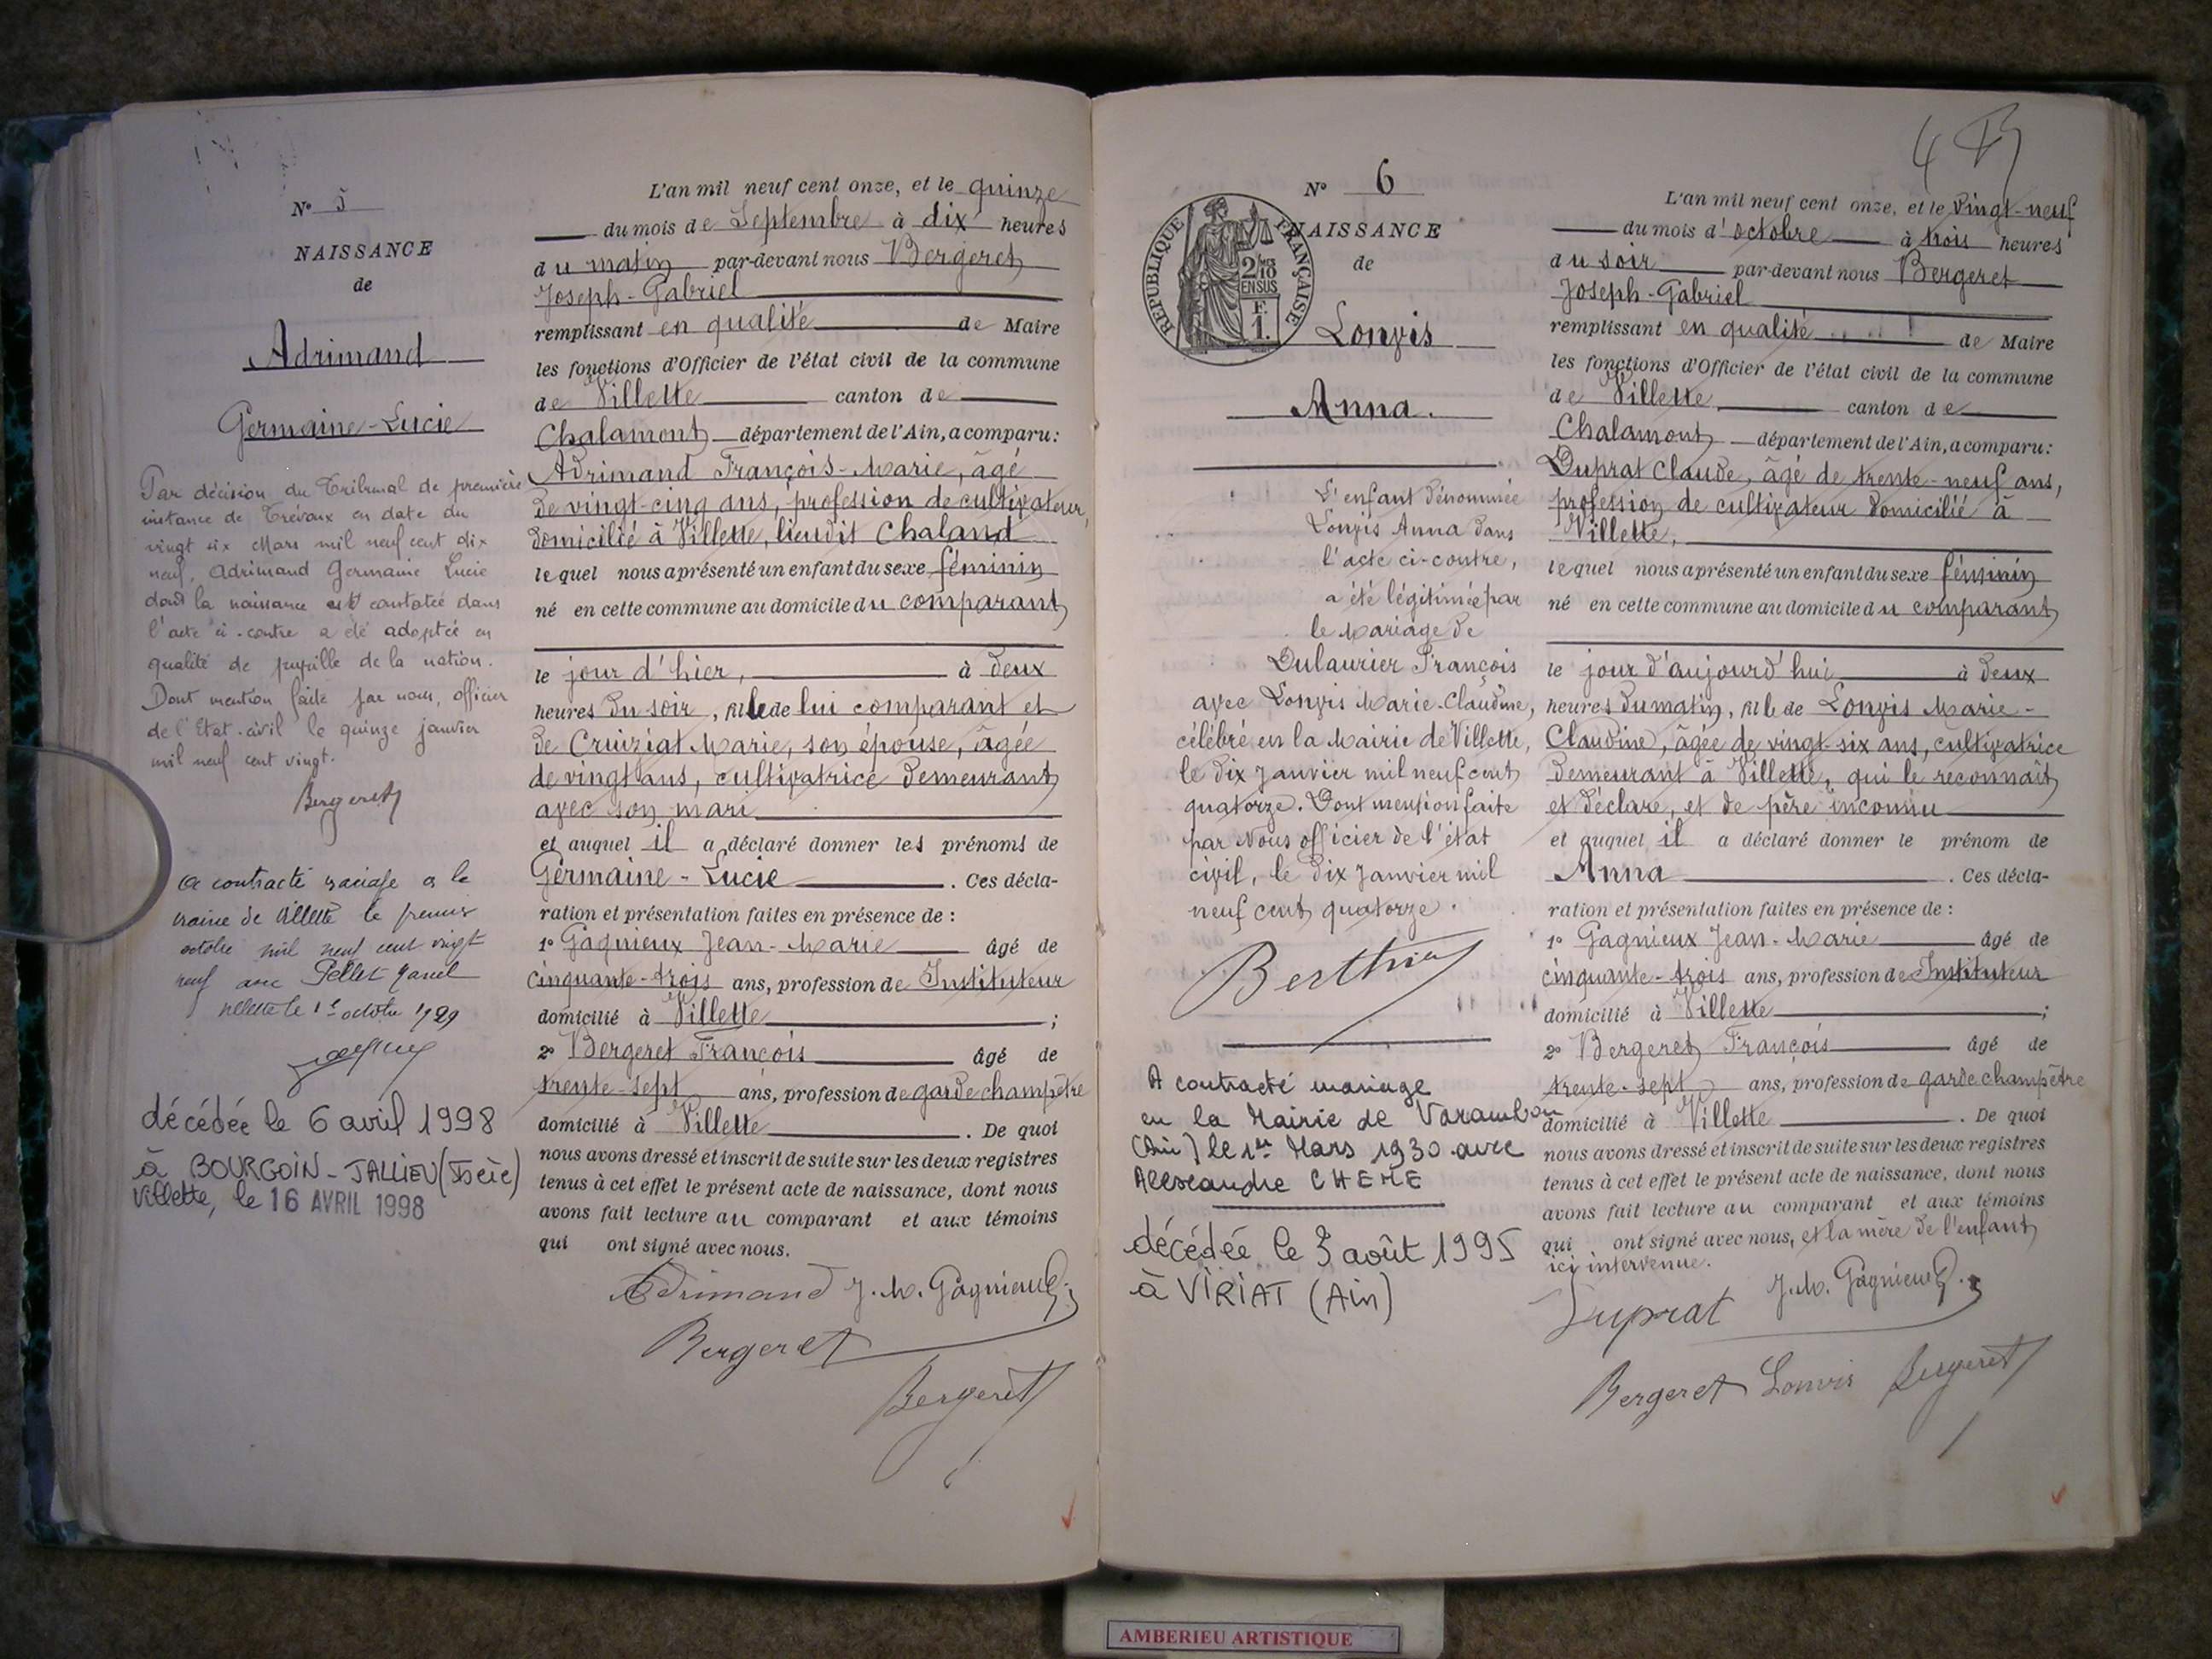 N° 5
NAISSANCE
de
Adrimand
Germaine-Lucie
Par décision du Tribunal de première
instance de Trévoux en date du
vingt six Mars mil neuf cent dix
neuf, Adrimand Germaine Lucie
dont la naissance est constatée dans
l'acte ci-contre a été adoptée en
qualité de pupille de la nation.
Dont mention faite par nous, officier
de l'Etat-civil le quinze janvier
mil neuf cent vingt.
Bergeret
a contracté mariage a la
mairie de Villette le premier
octobre mil neuf cent vingt
neuf avec Pellet
Villette le 1er octobre 1929
décédée le 6 avril 1998
à BOURGOIN-JALLIEU (Isère)
Villette, le 16 AVRIL 1998
L'an mil neuf cent onze, et le quinze
du mois de Septembre à dix heures
du matin par-devant nous Bergeret
Joseph-Gabriel
remplissant en qualité de Maire
les fonctions d'Officier de l'état civil de la commune
de Villette canton de
Chalamont département de l'Ain, a comparu:
Adrimand François-Marie, âgé
de vingt-cinq ans, profession de cultivateur,
domicilié à Villette, lieudit Chaland
lequel nous a présenté un enfant du sexe féminin
né en cette commune au domicile du comparant
le jour d'hier, à deux
heures du soir, fille de lui comparant et
de Cruiziat Marie, son épouse, âgée
de vingt ans, cultivatrice demeurant
avec son mari
et auquel il a déclaré donner les prénoms de
Germaine-Lucie. Ces décla-
ration et présentation faites en présence de :
1° Gagnieux Jean-Marie âgé de
cinquante-trois ans, profession de Instituteur
domicilié à Villette ;
2° Bergeret François âgé de
trente-sept ans, profession de garde champêtre
domicilié à Villette. De quoi
nous avons dressé et inscrit de suite sur les deux registres
tenus à cet effet le présent acte de naissance, dont nous
avons fait lecture au comparant et aux témoins
qui ont signé avec nous.
Adrimand J. M. Gagnieux
Bergeret
Bergeret
N° 6
NAISSANCE
de
REPUBLIQUE FRANÇAISE
2/10
EN SUS
F.
1.
Lonvis
Anna.
L'enfant dénommée
Lonvis Anna dans
l'acte ci-contre,
a été légitimée par
le Mariage de
Dulaurier François
avec Lonvis Marie-Claudine,
célébré en la Mairie de Villette,
le dix Janvier mil neuf cent
quatorze. Dont mention faite
par Nous officier de l'état
civil, le dix Janvier mil
neuf cent quatorze.
A contracté mariage
en la Mairie de Varambon
(Ain) le 1er Mars 1930 avec
Alexandre CHEME
décédée le 3 août 1995
à VIRIAT (Ain)
L'an mil neuf cent onze, et le vingt-neuf
du mois d'octobre à trois heures
du soir par-devant nous Bergeret
Joseph-Gabriel
remplissant en qualité de Maire
les fonctions d'Officier de l'état civil de la commune
de Villette canton de
Chalamont département de l'Ain, a comparu:
Duprat Claude, âgé de trente-neuf ans,
profession de cultivateur domicilié à
Villette,
lequel nous a présenté un enfant du sexe féminin
né en cette commune au domicile du comparant
le jour d'aujourd'hui à deux
heures du matin, fille de Lonvis Marie-
Claudine, âgée de vingt-six ans, cultivatrice
demeurant à Villette, qui le reconnaît
et déclare, et de père inconnu
et auquel il a déclaré donner le prénom de
Anna. Ces décla-
ration et présentation faites en présence de :
1° Gagnieux Jean-Marie âgé de
cinquante-trois ans, profession de Instituteur
domicilié à Villette ;
2° Bergeret François âgé de
trente-sept ans, profession de garde champêtre
domicilié à Villette. De quoi
nous avons dressé et inscrit de suite sur les deux registres
tenus à cet effet le présent acte de naissance, dont nous
avons fait lecture au comparant et aux témoins
qui ont signé avec nous, et la mère de l'enfant
ici intervenue.
Duprat J. M. Gagnieux
Bergeret Lonvis Bergeret
AMBERIEU ARTISTIQUE